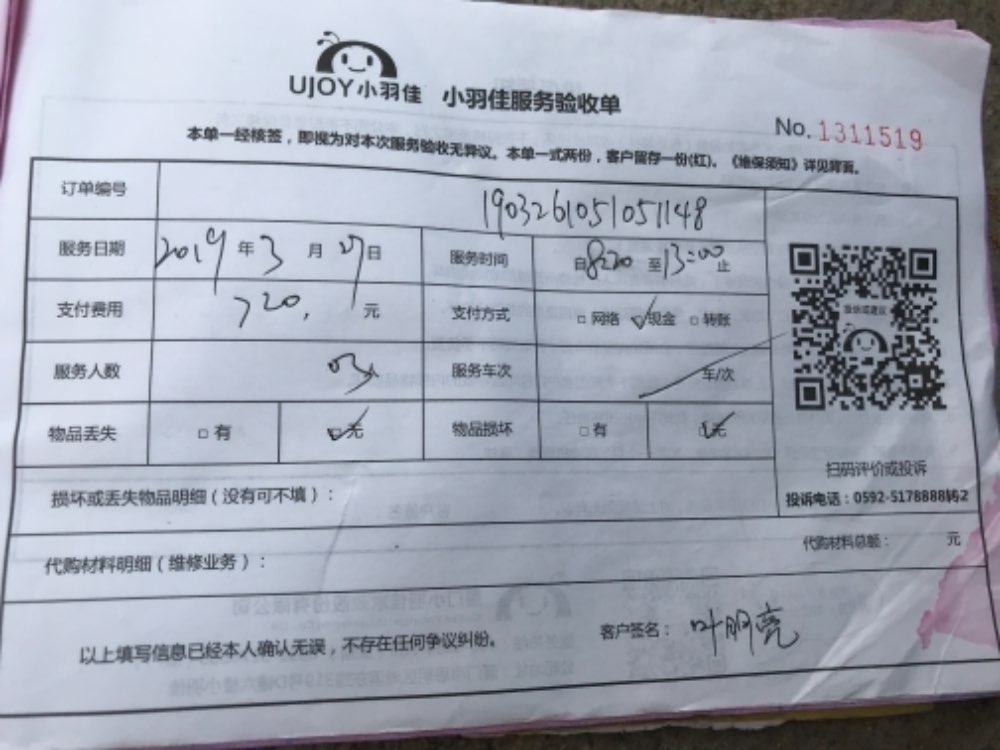 UJOY小羽佳 小羽佳服务验收单
No. 1311519
本单一经核签，即视为对本次服务验收无异议。本单一式两份，客户留存一份(红)。《维保须知》详见背面。
订单编号 1903261051051148
服务日期 2019 年 3 月 27 日 服务时间 自 8:20 至 13:00 止
支付费用 720. 元 支付方式 □ 网络 ☑ 现金 □ 转账
服务人数 03人 服务车次 车/次
物品丢失 □ 有 ☑ 无 物品损坏 □ 有 ☑ 无
扫码评价或投诉
投诉电话：0592-5178888转2
损坏或丢失物品明细（没有可不填）：
代购材料明细（维修业务）： 代购材料总额： 元
以上填写信息已经本人确认无误，不存在任何争议纠纷。 客户签名： 叶明亮